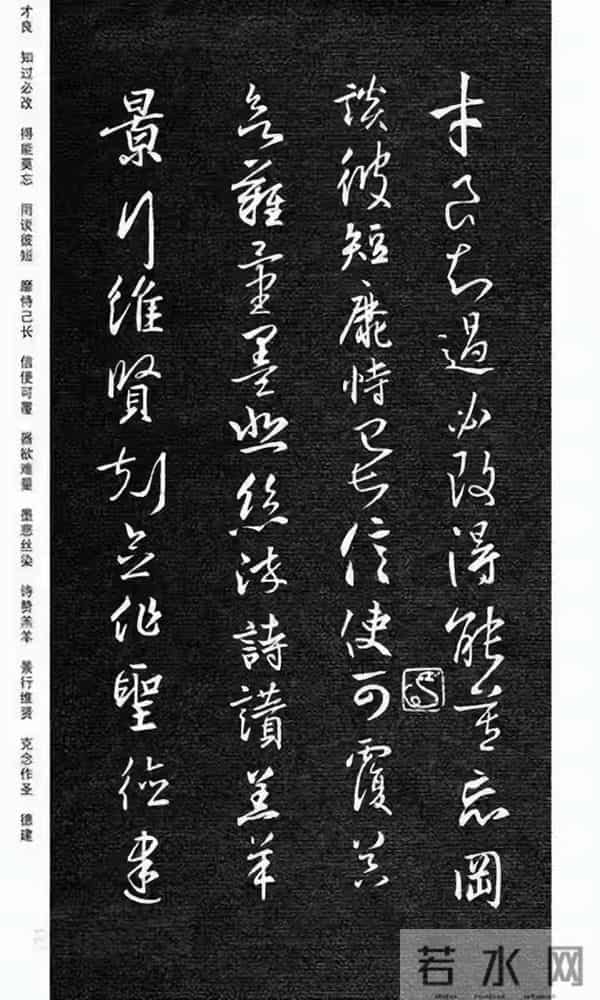 才良知過必改得能莫忘罔
談彼短靡恃己長信使可覆器
欲難量墨悲絲染詩讚羔羊
景行維賢剋念作聖德建
才良 知过必改 得能莫忘 罔谈彼短 靡恃己长 信使可覆 器欲难量 墨悲丝染 诗赞羔羊 景行维贤 克念作圣 德建
若水网